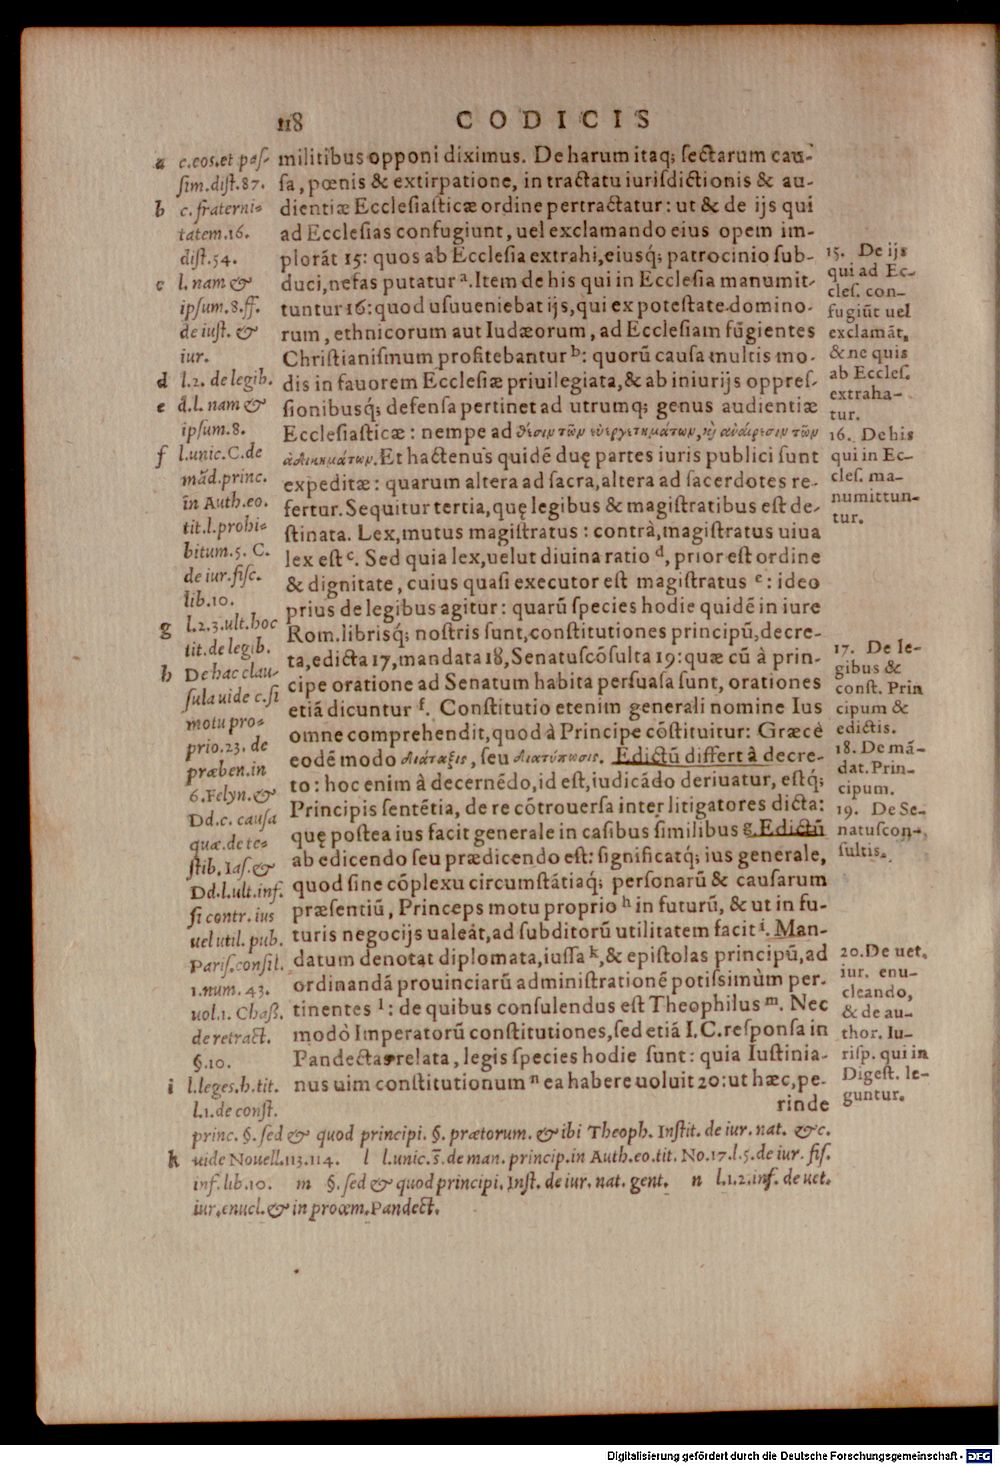 118
CODICIS
militibus opponi diximus. De harum itaq; ſectarum cau-
ſa, pœnis & extirpatione, in tractatu iuriſdictionis & au-
dientiæ Eccleſiaſticæ ordine pertractatur: ut & de ijs qui
ad Eccleſias confugiunt, uel exclamando eius opem im-
plorāt 15: quos ab Eccleſia extrahi, eiusq́; patrocinio ſub-
duci, nefas putatur a. Item de his qui in Eccleſia manumit-
tuntur 16: quod uſuueniebat ijs, qui ex poteſtate domino-
rum, ethnicorum aut Iudæorum, ad Eccleſiam fugientes
Chriſtianiſmum profitebantur b: quorū cauſa multis mo-
dis in fauorem Eccleſiæ priuilegiata, & ab iniurijs oppreſ-
ſionibusq́; defenſa pertinet ad utrumq; genus audientiæ
Eccleſiaſticæ: nempe ad θέσιν τῶν εὐεργετημάτων, καὶ ἀναίρεσιν τῶν
ἀδικημάτων. Et hactenus quidē duę partes iuris publici ſunt
expeditæ: quarum altera ad ſacra, altera ad ſacerdotes re-
fertur. Sequitur tertia, quę legibus & magiſtratibus eſt de-
ſtinata. Lex, mutus magiſtratus: contrà, magiſtratus uiua
lex eſt c. Sed quia lex, uelut diuina ratio d, prior eſt ordine
& dignitate, cuius quaſi executor eſt magiſtratus e: ideo
prius de legibus agitur: quarū ſpecies hodie quidē in iure
Rom. librisq́; noſtris ſunt, conſtitutiones principū, decre-
ta, edicta 17, mandata 18, Senatuſcōſulta 19: quæ cū à prin-
cipe oratione ad Senatum habita perſuaſa ſunt, orationes
etiā dicuntur f. Conſtitutio etenim generali nomine Ius
omne comprehendit, quod à Principe cōſtituitur: Græcè
eodē modo διάταξις, ſeu διατύπωσις. Edictū differt à decre-
to: hoc enim à decernēdo, id eſt, iudicādo deriuatur, eſtq́;
Principis ſentētia, de re cōtrouerſa inter litigatores dicta:
quę poſtea ius facit generale in caſibus ſimilibus g. Edictū
ab edicendo ſeu prædicendo eſt: ſignificatq́; ius generale,
quod ſine cōplexu circumſtātiaq́; perſonarū & cauſarum
præſentiū, Princeps motu proprio h in futurū, & ut in fu-
turis negocijs ualeat, ad ſubditorū utilitatem facit i. Man-
datum denotat diplomata, iuſſa k, & epiſtolas principū, ad
ordinandā prouinciarū adminiſtrationē potiſſimùm per-
tinentes l: de quibus conſulendus eſt Theophilus m. Nec
modò Imperatorū conſtitutiones, ſed etiā I. C. reſponſa in
Pandectas relata, legis ſpecies hodie ſunt: quia Iuſtinia-
nus uim conſtitutionum n ea habere uoluit 20: ut hæc, pe-
rinde
a c. eos. et paſ-
ſim. diſt. 87.
b c. fraterni-
tatem. 16.
diſt. 54.
c l. nam &
ipſum. 8. ff.
de iuſt. &
iur.
d l. 2. de legib.
e d. l. nam &
ipſum. 8.
f l. unic. C. de
mād. princ.
in Auth. eo.
tit. l. prohi-
bitum. 5. C.
de iur. fiſc.
lib. 10.
g l. 2. 3. ult. hoc
tit. de legib.
h De hac clau-
ſula uide c. ſi
motu pro-
prio. 23. de
præben. in
6. Felyn. &
Dd. c. cauſa
quæ. de te-
ſtib. Iaſ. &
Dd. l. ult. inf.
ſi contr. ius
uel util. pub.
Pariſ. conſil.
1. num. 43.
uol. 1. Chaſſ.
de retract.
§. 10.
i l. leges. h. tit.
l. 1. de conſt.
princ. §. ſed & quod principi. §. prætorum. & ibi Theoph. Inſtit. de iur. nat. &c.
k uide Nouell. 113. 114. l l. unic. §. de man. princip. in Auth. eo. tit. No. 17. l. 5. de iur. fiſ.
inf. lib. 10. m §. ſed & quod principi. Inſt. de iur. nat. gent. n l. 1. 2. inf. de uet.
iur. enucl. & in proœm. Pandect.
15. De ijs
qui ad Ec-
cleſ. con-
fugiūt uel
exclamāt,
& ne quis
ab Eccleſ.
extraha-
tur.
16. De his
qui in Ec-
cleſ. ma-
numittun-
tur.
17. De le-
gibus &
conſt. Prin
cipum &
edictis.
18. De mā-
dat. Prin-
cipum.
19. De Se-
natuſcon-
ſultis.
20. De uet.
iur. enu-
cleando,
& de au-
thor. Iu-
riſp. qui in
Digeſt. le-
guntur.
Digitalisierung gefördert durch die Deutsche Forschungsgemeinschaft - DFG